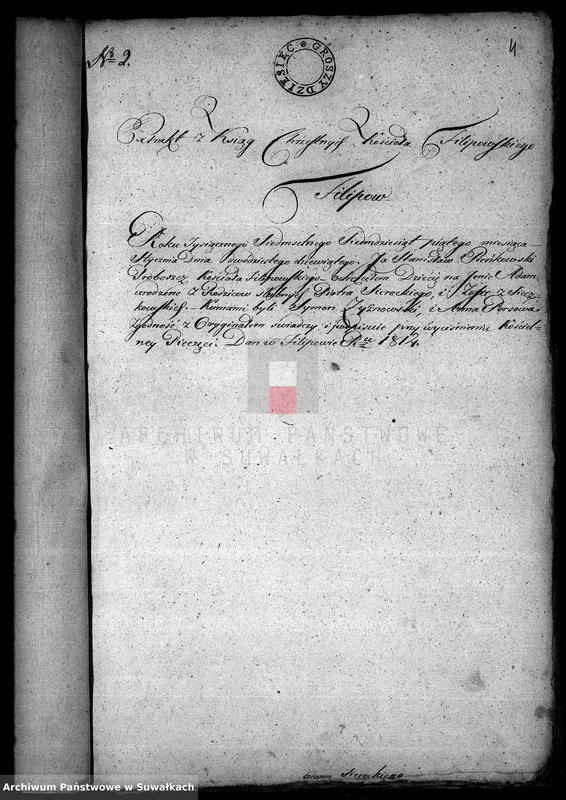 № 2.
DZIESIĘĆ GROSZY
4
Extrakt z Ksiąg Chrzestnych Kościoła Filipowskiego
Filipow
Roku Tysiącznego Siedmsetnego Siedmdziesiąt piątego miesiąca
Stycznia Dnia dwudziestego dziewiątego. Ja Stanisław Pieńkowski
Proboszcz Kościoła Filipowskiego ochrzciłem Dziecię na Imie Adam
urodzone z Rodziców Piotra Siereckiego, i Zofii z
kowskich. Kumami byli Symon Zyznowski, i Anna Persowa
zgodność z Oryginałem swiadczy i podpisuie przy wyciśnieniu Kościel-
ney Pieczęci. Dan w Filipowie Ru 1814.
ARCHIWUM PAŃSTWOWE
W SUWAŁKACH
Adama Siereckiego
Archiwum Państwowe w Suwałkach